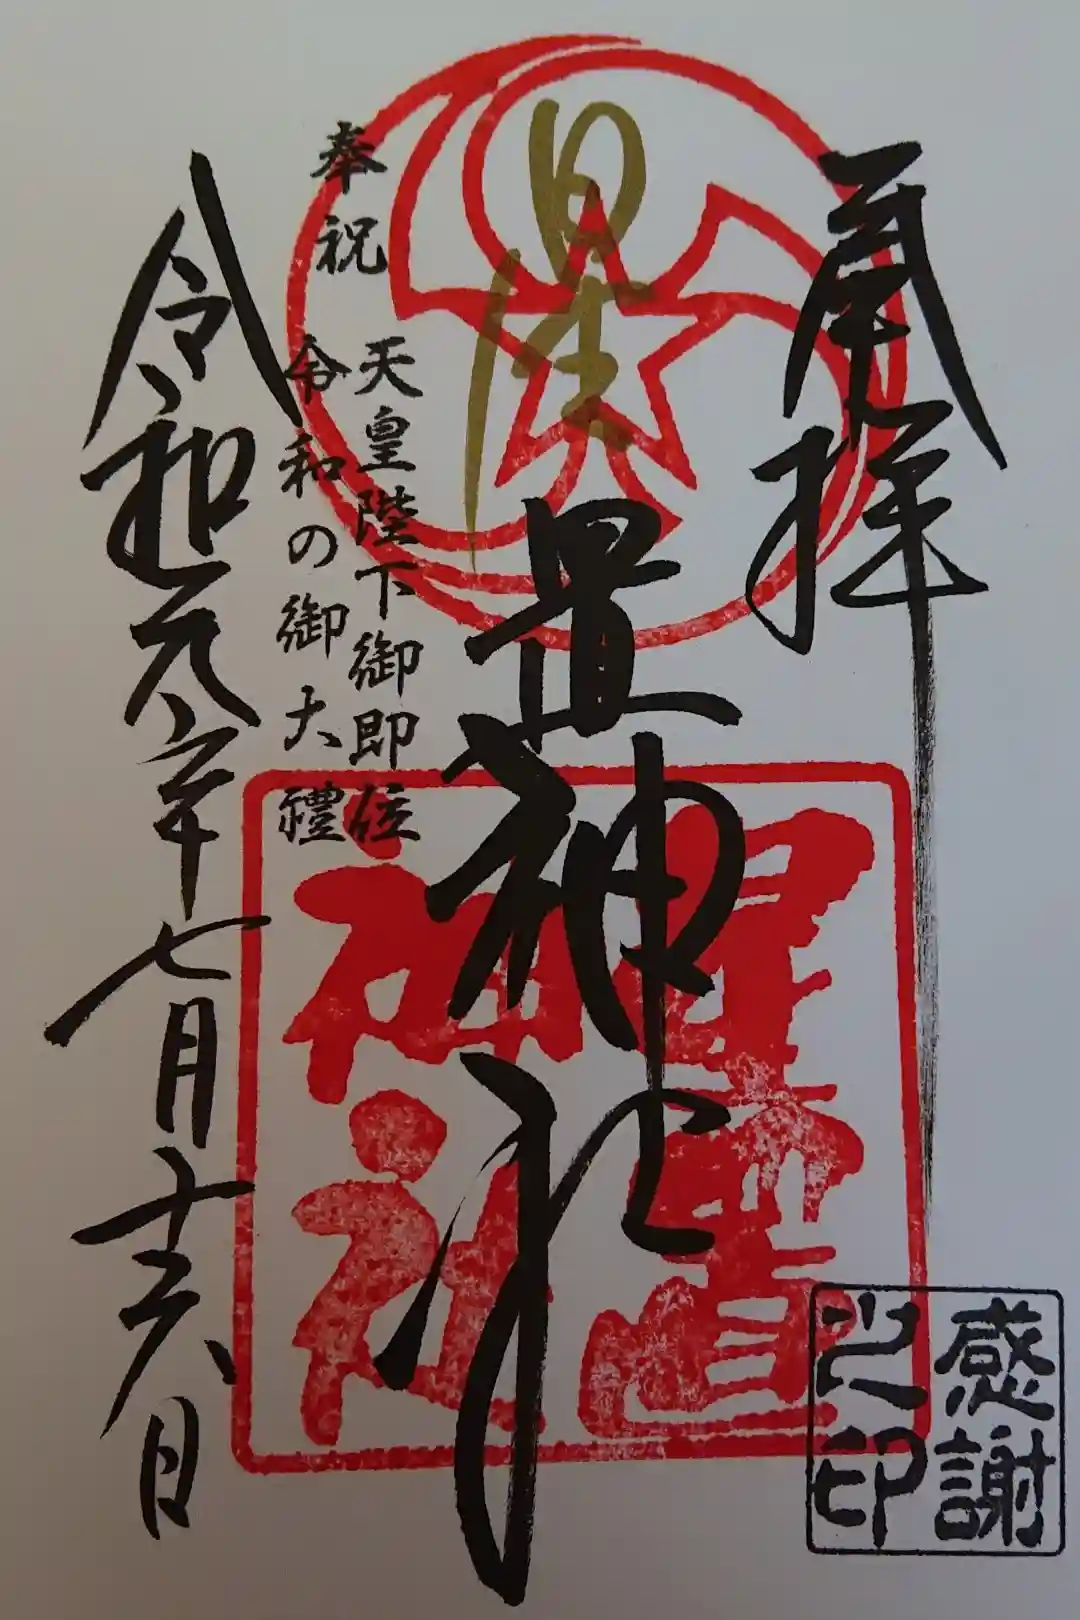 奉拝
星置神社
星置
神社
奉祝
天皇陛下御即位
令和の御大禮
令和元年七月十六日
感謝
之印